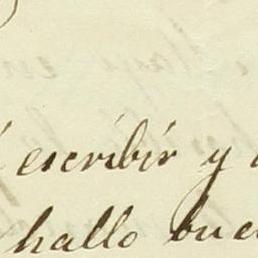 escribir y
hallo